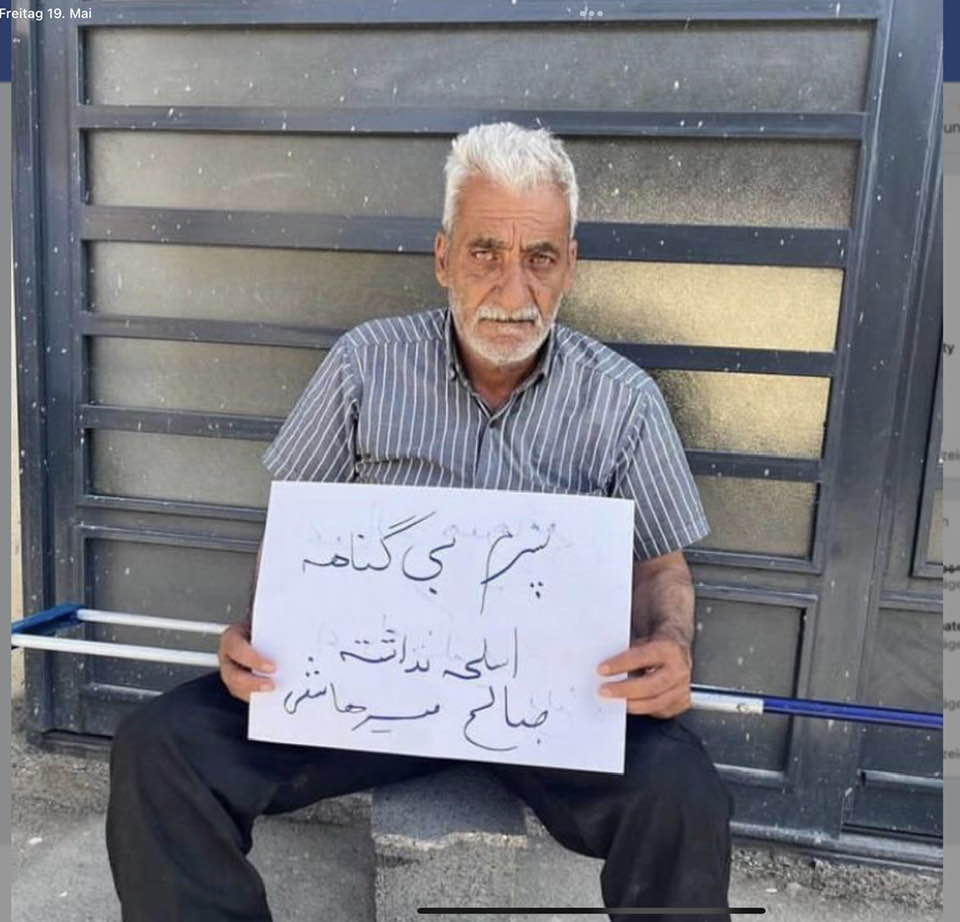 Freitag 19. Mai
پسرم بی گناهه
اسلحه نداشته
صالح میرهاشمی